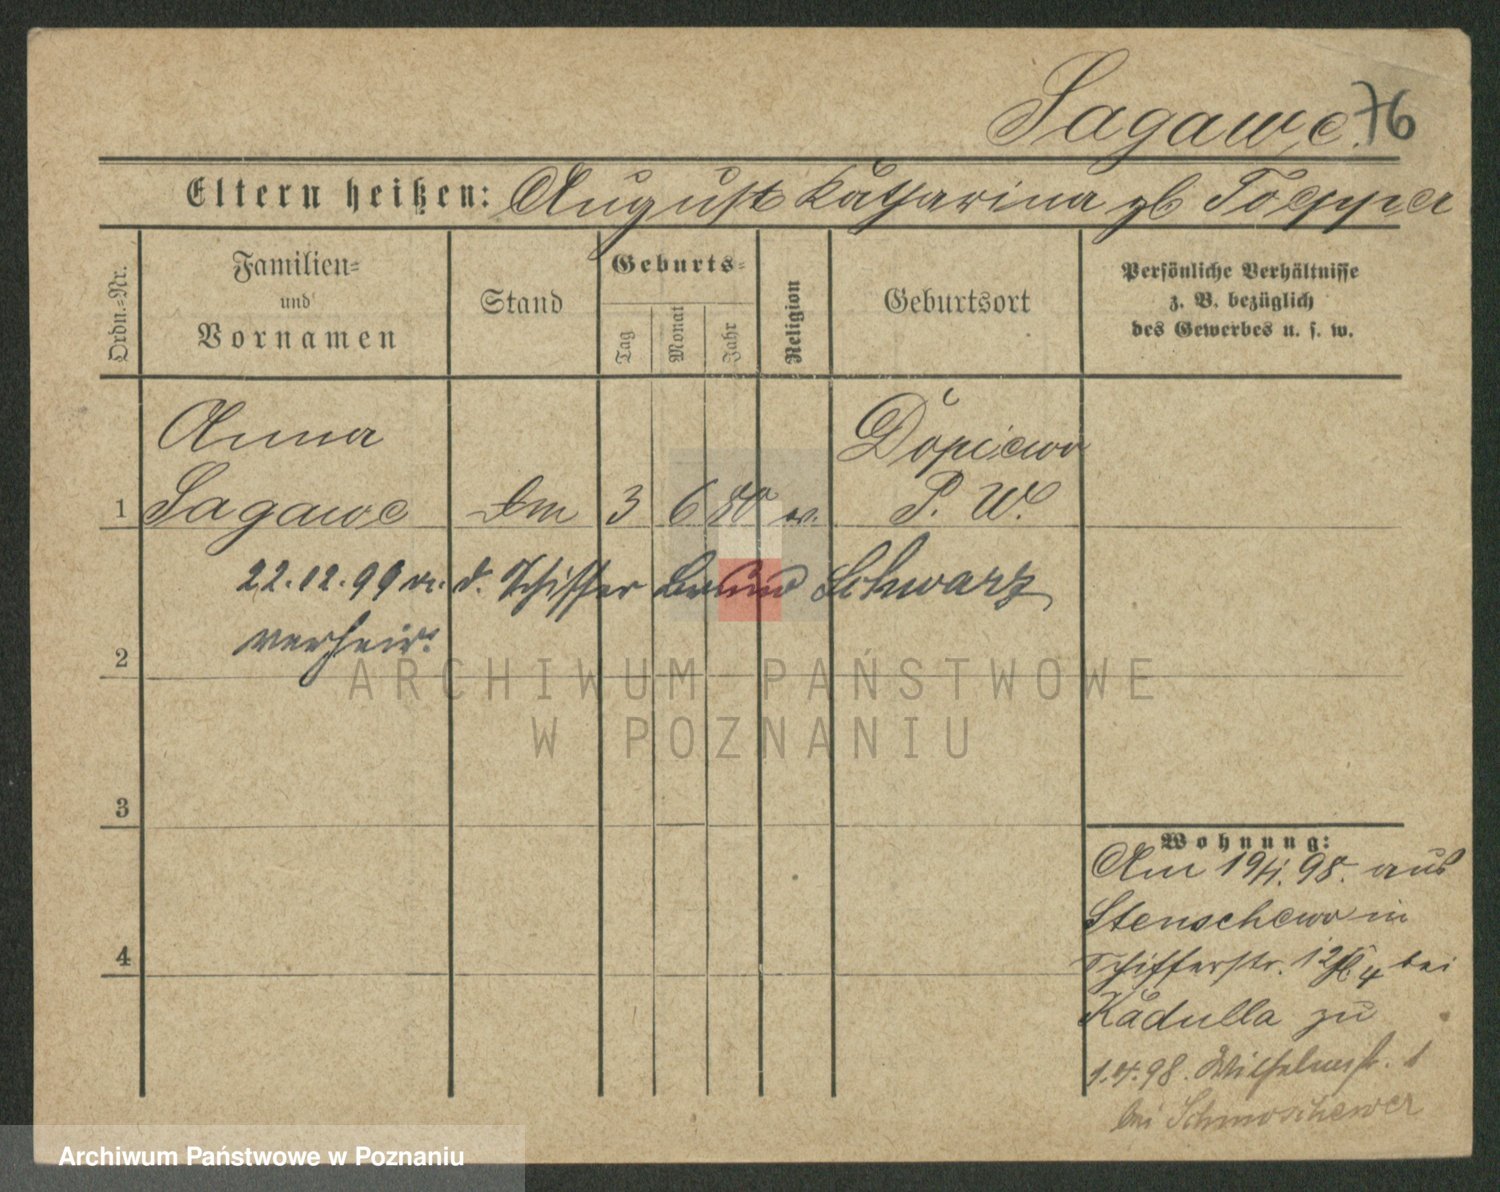 Sagawe. 76
Eltern heißen: August Katharina gb Toepper
Ordn.-Nr.
Familien-
und
Vornamen
Stand
Geburts-
Tag
Monat
Jahr
Religion
Geburtsort
Persönliche Verhältnisse
z. B. bezüglich
des Gewerbes u. s. w.
Anna Dopiewo
1 Sagawe 3 6 80 P. W.
22.12.99 d. Schiffer Schwarz
verheir.
2
3
4
Wohnung:
Am 19/1.98. aus
Stenschewo in
Schifferstr. 12 bei
Kadulla zu
1.4.98. Wilhelmstr. 1
bei
ARCHIWUM PAŃSTWOWE
W POZNANIU
Archiwum Państwowe w Poznaniu